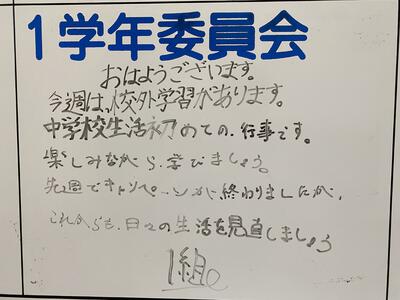 1学年委員会
おはようございます。
今週は、校外学習があります。
中学校生活初めての、行事です。
楽しみながら、学びましょう。
先週でキャンペーンが終わりましたが、
これからも、日々の生活を見直しましょう
1組。